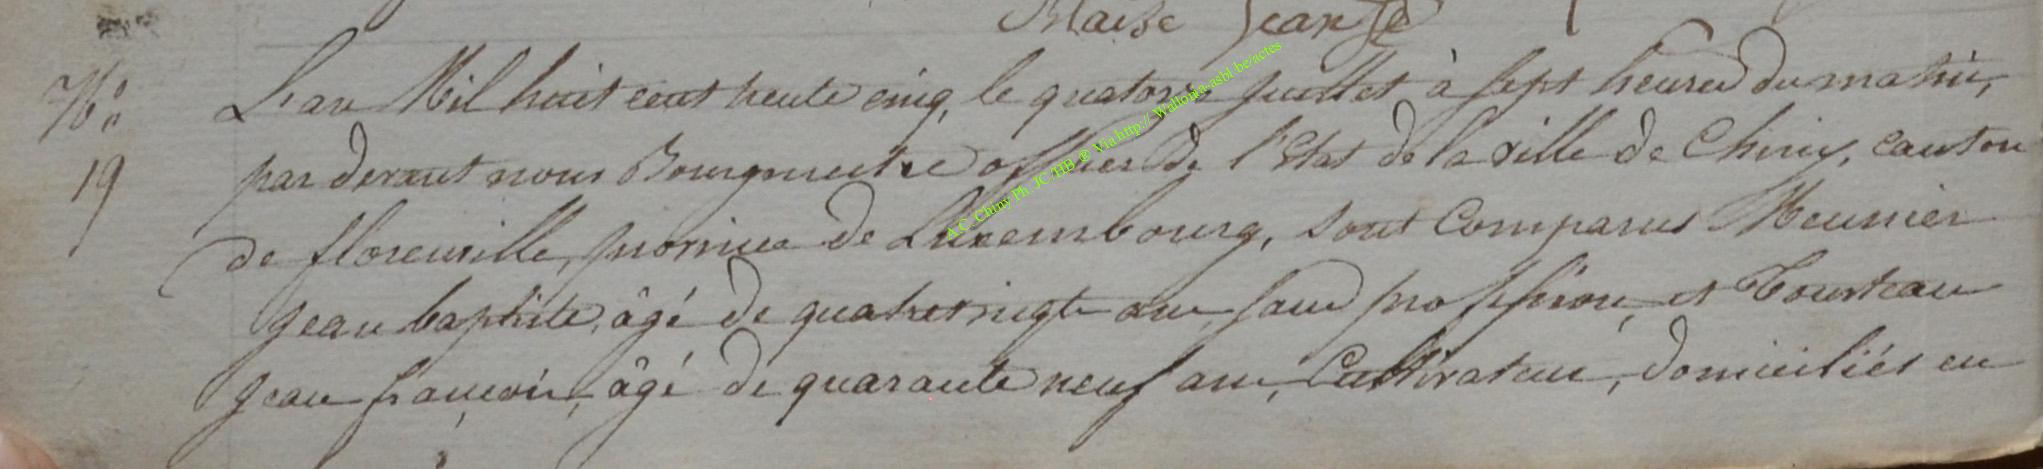 Maise Jean Je
N.o L'an Mil huit cent trente cinq, le quatorze juillet à sept heures du matin,
19 par devant nous Bourgmestre officier de l'Etat de la ville de Chiny, canton
de florenville, province de Luxembourg, sont comparus Meunier
Jean baptiste, âgé de quatrevingt ans, sans profession, et Tourteau
Jean françois, âgé de quarante neuf ans, Cultivateur, domiciliés en
A.C. Chiny Ph. JC/HB ® Via http://Wallonia-asbl.be/actes